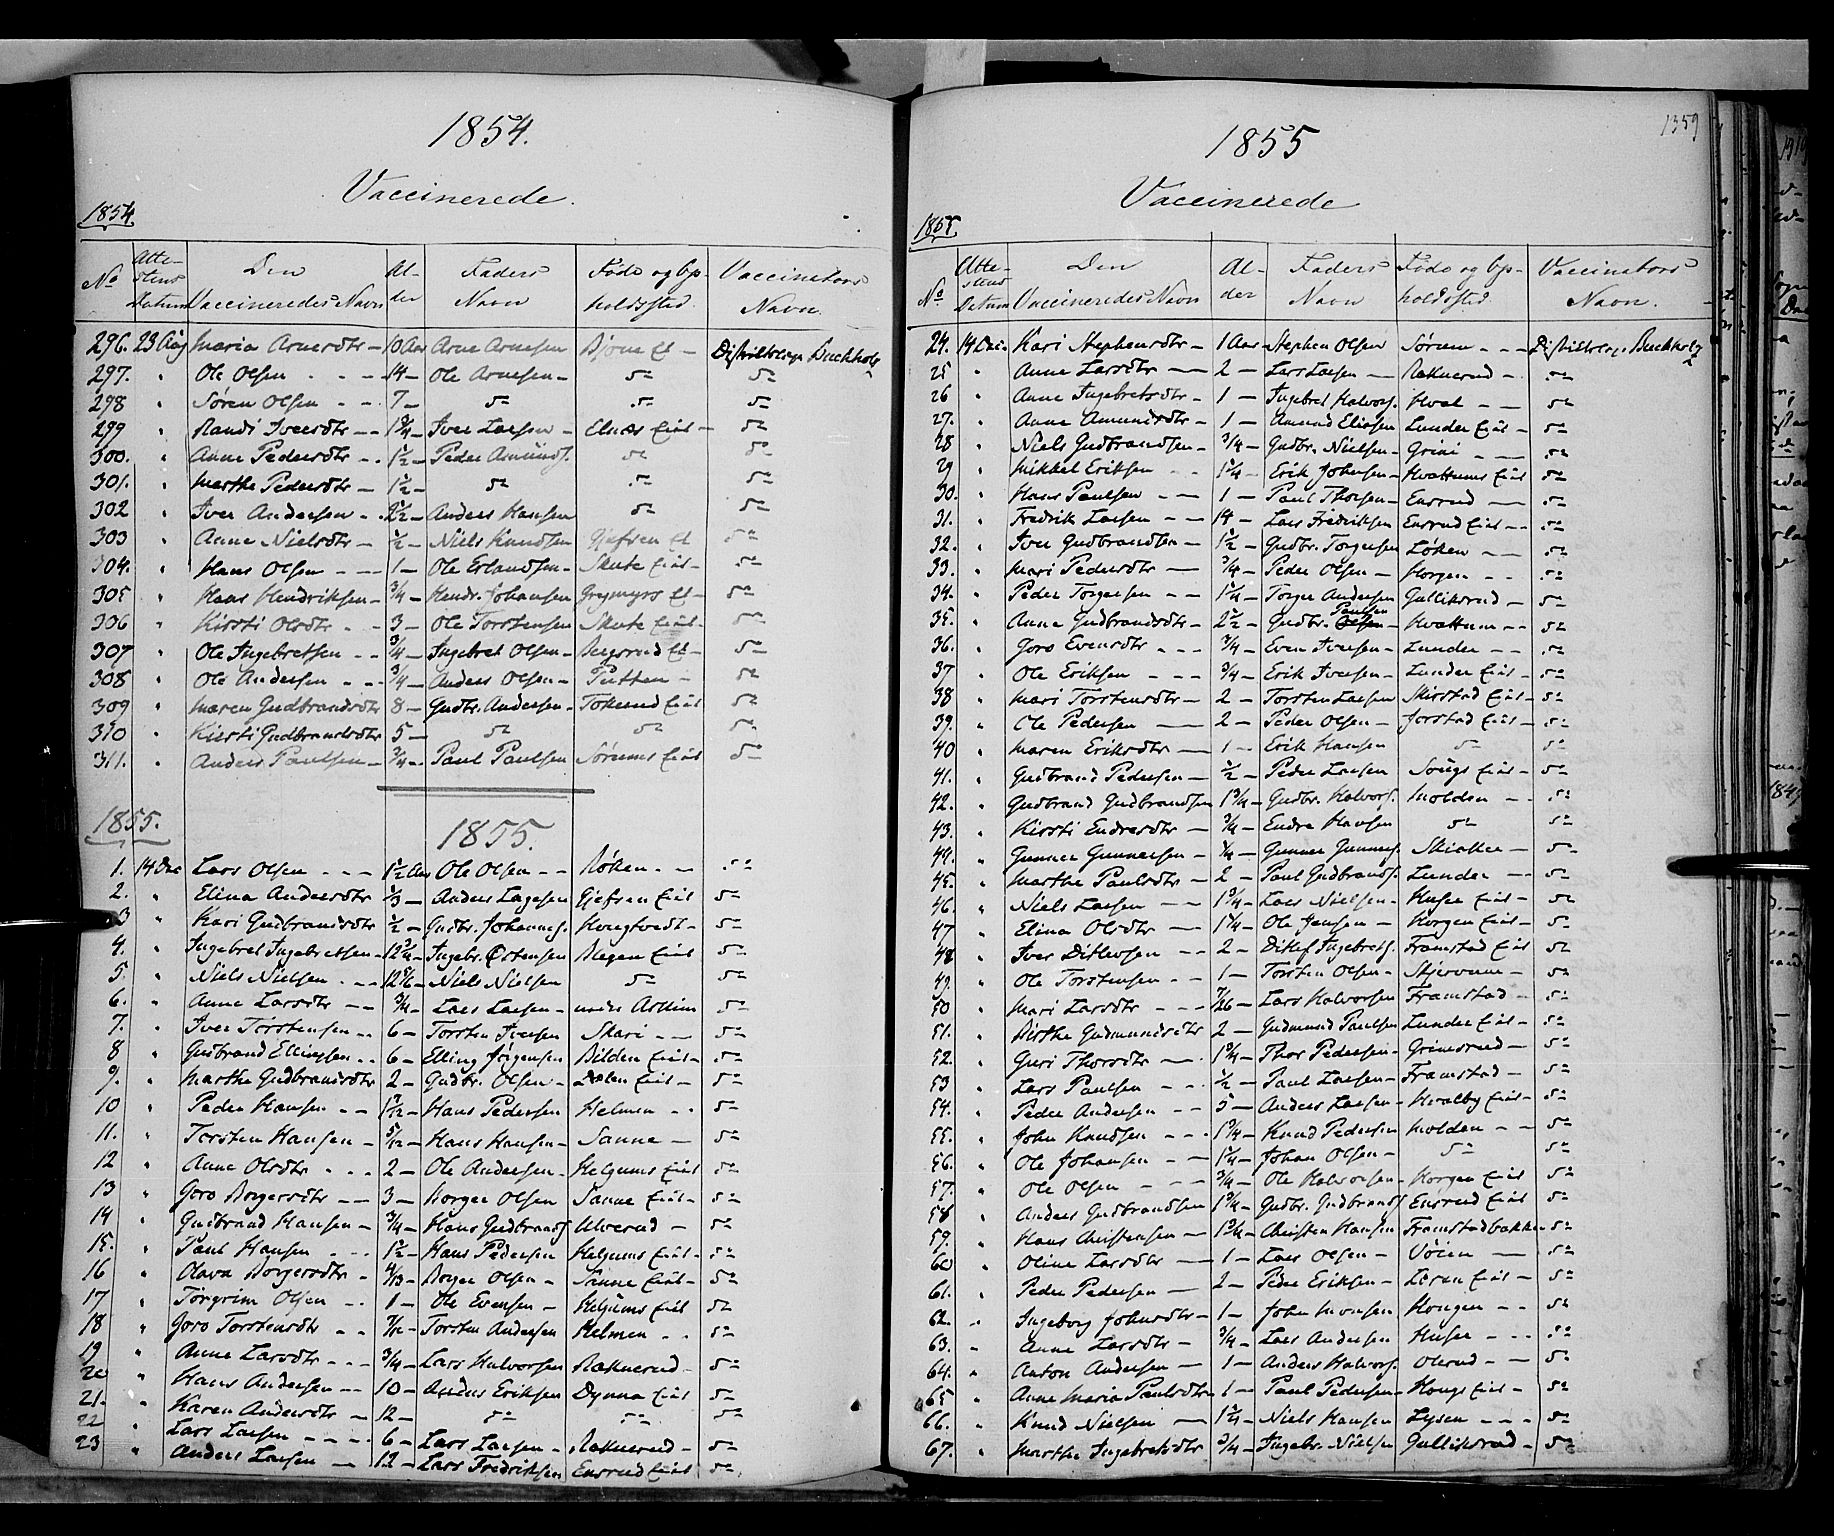 1854.
Vaccinerede.
1854.
No Attestens Datum Den Vaccineredes Navn Alder Faders Navn Føde og Opholdssted. Vaccinateurs Navn.
296. 23 Aug Maria Arnesdtr — 10 Aar Arne Arnesen Bjone Et — Buchholz
297. " Ole Olsen - - - 14 — Ole Arnesen — do do
298 " Søren Olsen - - 7 — do do do
299 " Randi Iversdtr — 1 3/4 — Iver Larsen — Elnæs Eiet — do
300. " Anne Pedersdtr - . 1 1/2 — Peder Amunds. do do
301. " Marthe Pedersdtr — 1 1/2 — do do do
302 " Iver Andersen - . 2 1/2 — Anders Hansen do do
303 " Anne Nielsdtr — 1/2 — Niels Knudsen Gjefsen Et do
304. " Hans Olsen - - — 1 — Ole Erlandsen — Skute Eiet — do
305 " Hans Hendriksen — 3/4 — Hendr. Johansen Et — do
306 " Kirsti Olsdtr - - 3 — Ole Torstensen Skute Eiet — do
307 " Ole Ingebretsen - - 3/4 — Ingebret Olsen — Bergsrud Et — do
308 " Ole Andersen - - - 3/4 — Anders Olsen — Putten — do
309 " Maren Gudbrandsdtr 8 — Gudbr. Andersen — Tokerud Eiet do
310 " Kirsti Gudbrandsdtr 5 — do do do
311. " Anders Paulsen — 3/4 — Paul Paulsen Sørums Eiet do
1855. 1855.
1. 14 Dec Lars Olsen - - - 1 1/2 Aar Ole Olsen - - Røken - - do
2. " Elina Andersdtr 1/3 — Anders Lagesen Gjefsen Eiet do
3 " Kari Gudbrandsdtr 1/2 — Gudbr. Johannes. Haugtvedt — do
4. " Ingebret Ingebretsen — 12 3/4 — Ingebr. Østensen Blegen Eiet do
5. " Niels Nielsen - - - 12 5/6 — Niels Nielsen do do
6. " Anne Larsdtr — — 3/4 — Lars Larsen — do
7. " Iver Torstensen - - 6 — Torsten Iversen Skari - — do
8 " Gudbrand Ellingsen - - 6 — Elling Jørgensen Bilden Eiet — do
9. " Marthe Gudbrandsdtr 2 — Gudbr. Olsen — Dælen Eiet — do
10 " Peder Hansen - — 1 7/12 — Hans Pedersen Helmen - - do
11. " Torsten Hansen — 5/12 — Hans Hansen — Sanne — do
12 " Anne Olsdtr - - - 2 — Ole Andersen — Helgums Eiet do
13 " Goro Borgersdtr — — 3 — Borger Olsen Sanne Eiet — do
14 " Gudbrand Hansen — 3/4 — Hans Gudbrands. Ulverud — do
15. " Paul Hansen - - 1 1/2 — Hans Pedersen Helgums Eiet — do
16 " Olava Borgersdtr - 4/13 — Borger Olsen — Sanne Eiet — do
17 " Torgrim Olsen - - 1 — Ole Evensen — Helgums Eiet do
18 " Goro Torstensdtr - - 7/12 — Torsten Andersen Helmen - - do
19 " Anne Larsdtr - - - 3/4 — Lars Halvorsen Røknerud — do
20 " Hans Andersen — — 10 — Anders Eriksen Dynna Eiet do
21. " Karen Andersdtr — 12 — do do do
22 " Lars Larsen - - - - 6 — Lars Larsen — Røknerud — do
23 " Anders Larsen — 12 — Lars Fredriksen Ensrud Eiet do
1359
1855
Vaccinerede
1855.
No Attestens Datum Den Vaccineredes Navn Alder Faders Navn Føde og Opholdssted. Vaccinateurs Navn.
24. 14 Dec. Kari Stephensdtr — 1 Aar — Stephen Olsen Sørum - - - Buchholz
25 " Anne Larsdtr — 2 — Lars Larsen — Røknerud — do
26 " Anne Ingebretsdtr — 1 — Ingebret Halvors. Hval - — do
27. " Anne Amundsdtr — 1 — Amund Eliasen Lunder Eiet — do
28 " Niels Gudbrandsen — 3/4 — Gudbr. Nielsen — Grini - — do
29 " Mikkel Eriksen - - 1 1/4 — Erik Johansen — Hvattums Eiet do
30. " Hans Paulsen - — 1 — Paul Thorsen — Ensrud — do
31. " Fredrik Larsen - — 14 — Lars Fredriksen Ensrud Eiet - - do
32. " Iver Gudbrandsen — 1 1/2 — Gudbr. Torgersen Løken — — do
33. " Mari Pedersdtr — 3/4 — Peder Olsen — Horgen - - do
34. " Peder Torgersen - - 1 1/4 — Torger Andersen Gulliksrud — do
35. " Anne Gudbrandsdtr — 2 1/2 — Gudbr. Paulsen Hvattum - - do
36. " Goro Evensdtr - - - 3/4 — Even Iversen — Lunder - - do
37 " Ole Eriksen - - - 3/4 — Erik Iversen — Lunder Eiet — do
38 " Mari Torstensdtr — 2 — Torsten Larsen Skirstad Eiet — do
39. " Ole Pedersen — 2 — Peder Olsen — Jorstad Eiet — do
40 " Maren Eriksdtr — 1 — Erik Hansen do do
41. " Gudbrand Pedersen — 1/2 — Peder Larsen Sougs Eiet — do
42. " Gudbrand Gudbrandsen 1 3/4 — Gudbr. Halvors. Molden - - do
43. " Kirsti Endresdtr — 3/4 — Endre Hansen do do
44. " Gunner Gunnersen — 1/4 — Gunner Gunners. Skiaker — do
45. " Marthe Paulsdtr — 2 — Paul Gudbrands. Lunder — do
46. " Niels Larsen — — 1 3/4 — Lars Nielsen — Huser Eiet — do
47 " Elina Olsdtr — 1 1/4 — Ole Jensen — Horgen Eiet — do
48 " Iver Ditlevsen - - 2 — Ditlef Ingebrets. Framstad Eiet do
49. " Ole Torstensen - — 1 — Torsten Olsen — Skjervum — do
50 " Mari Larsdtr — — 7/26 — Lars Halvorsen Framstad — do
51. " Birthe Gudmundsdtr 2 — Gudmund Paulsen Lunder Eiet — do
52. " Guri Thorsdtr — 1 3/4 — Thor Pedersen — Grimsrud — do
53 " Lars Paulsen - - - 1/2 — Paul Larsen — Framstad — do
54. " Peder Andersen - - 5 — Anders Larsen — Hvalby Eiet — do
55. " John Knudsen - - - 1 3/4 — Knud Pedersen Molden - - do
56. " Ole Johansen - — 1 1/4 — Johan Olsen — do do
57. " Ole Olsen - - - 3/4 — Ole Halvorsen — Horgen Eiet do
58 " Anders Gudbrandsen 1 3/4 — Gudbr. Gudbrands. Ensrud Eiet do
59. " Hans Christensen — 1 3/4 — Christen Hansen Framstadbakken do
60 " Oline Larsdtr — 1 — Lars Olsen — Vøien — do
61. " Peder Pedersen — 2 — Peder Eriksen — Eiet — do
62. " Ingeborg Johnsdtr — 1 — John Monsen Haugen - - do
63. " Anne Larsdtr — 3/4 — Lars Andersen Huser - - do
64. " Anton Andersen — 1 — Anders Halvors. Olerud — do
65 " Anne Maria Paulsdtr — 1 — Paul Pedersen — Hougs Eiet — do
66. " Knud Nielsen — 1 1/4 — Niels Hansen Lysen - - - do
67. " Marthe Ingebretsdtr 3/4 — Ingebr. Nielsen Gulliksrud — do